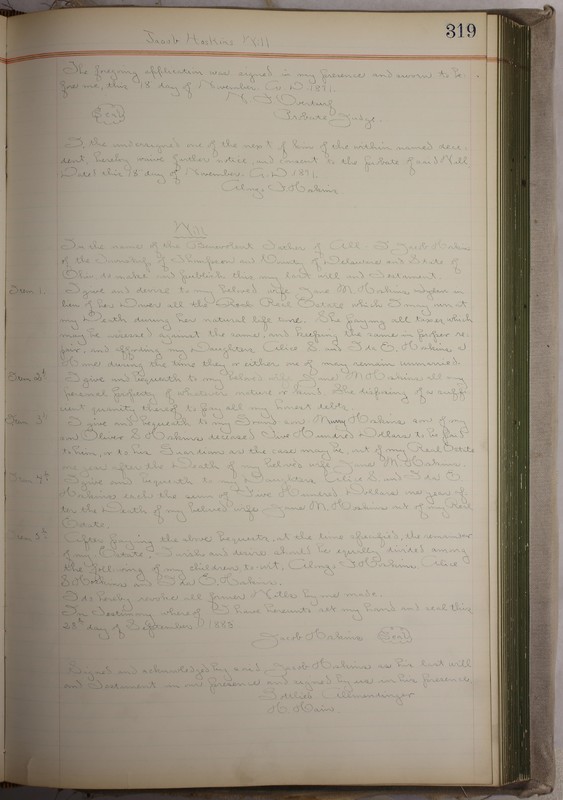 319
Jacob Hoskins Will
The foregoing application was signed in my presence and sworn to be-
fore me, this 18 day of November A. D. 1891.
Seal
Probate Judge.
I, the undersigned one of the next of kin of the within named dece-
dent, hereby waive further notice, and consent to the probate of said Will
Dated this 18 day of November. A. D. 1891.
Will
In the name of the Benevolent Father of All. I, Jacob Hoskins
of the Township of Thompson and County of Delaware and State of
Ohio, do make and publish this my last will and Testament.
Item 1. I give and devise to my beloved wife, Jane M Hoskins in
lieu of her Dower all the Real Estate which I may own at
my Death during her natural life time. She paying all taxes which
may be assessed against the same, and keeping the same in proper re-
pair, and affording my Daughters Clice S. and Ida E. Hoskins a
Home during the time they or either of them may remain unmarried.
Item 2d I give and bequeath to my beloved wife Jane M Hoskins all my
personal property of whatever nature or kind. She disposing of a suffi-
cient quantity thereof to pay all my honest debts.
Item 3d I give and bequeath to my Grand son Harry Hoskins son of my
son Oliver S Hoskins deceased Five Hundred Dollars to be paid
to him, or to his Guardian as the case may be, out of my Real Estate
one year after the Death of my beloved wife Jane M. Hoskins.
Item 4th I give and bequeath to my Daughters, Clice S. and Ida E.
Hoskins each the sum of Five Hundred Dollars one year af-
ter the Death of my beloved wife Jane M Hoskins out of my Real
Estate.
Item 5th After paying the above bequests, at the time specified, the remainder
of my Estate, I wish and desire should be equally divided among
the following of my children to-wit, J Hoskins, Clice
S Hoskins and Ida E. Hoskins.
I do hereby revoke all former Wills by me made.
In Testimony whereof I have hereunto set my hand and seal this
28th day of September 1888
Jacob Hoskins Seal
Signed and acknowledged by said, Jacob Hoskins as his last will
and Testament in our presence and signed by us in his presence,
Gottlieb